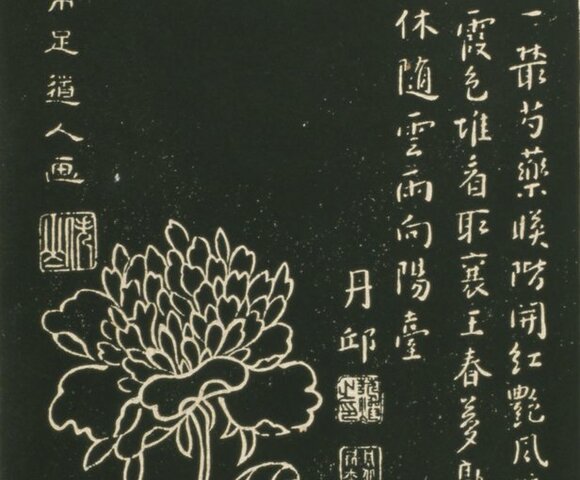 一叢芍藥暎階開紅艷風
霞色堆看取襄王春夢
休隨雲雨向陽臺
丹邱
足道人画